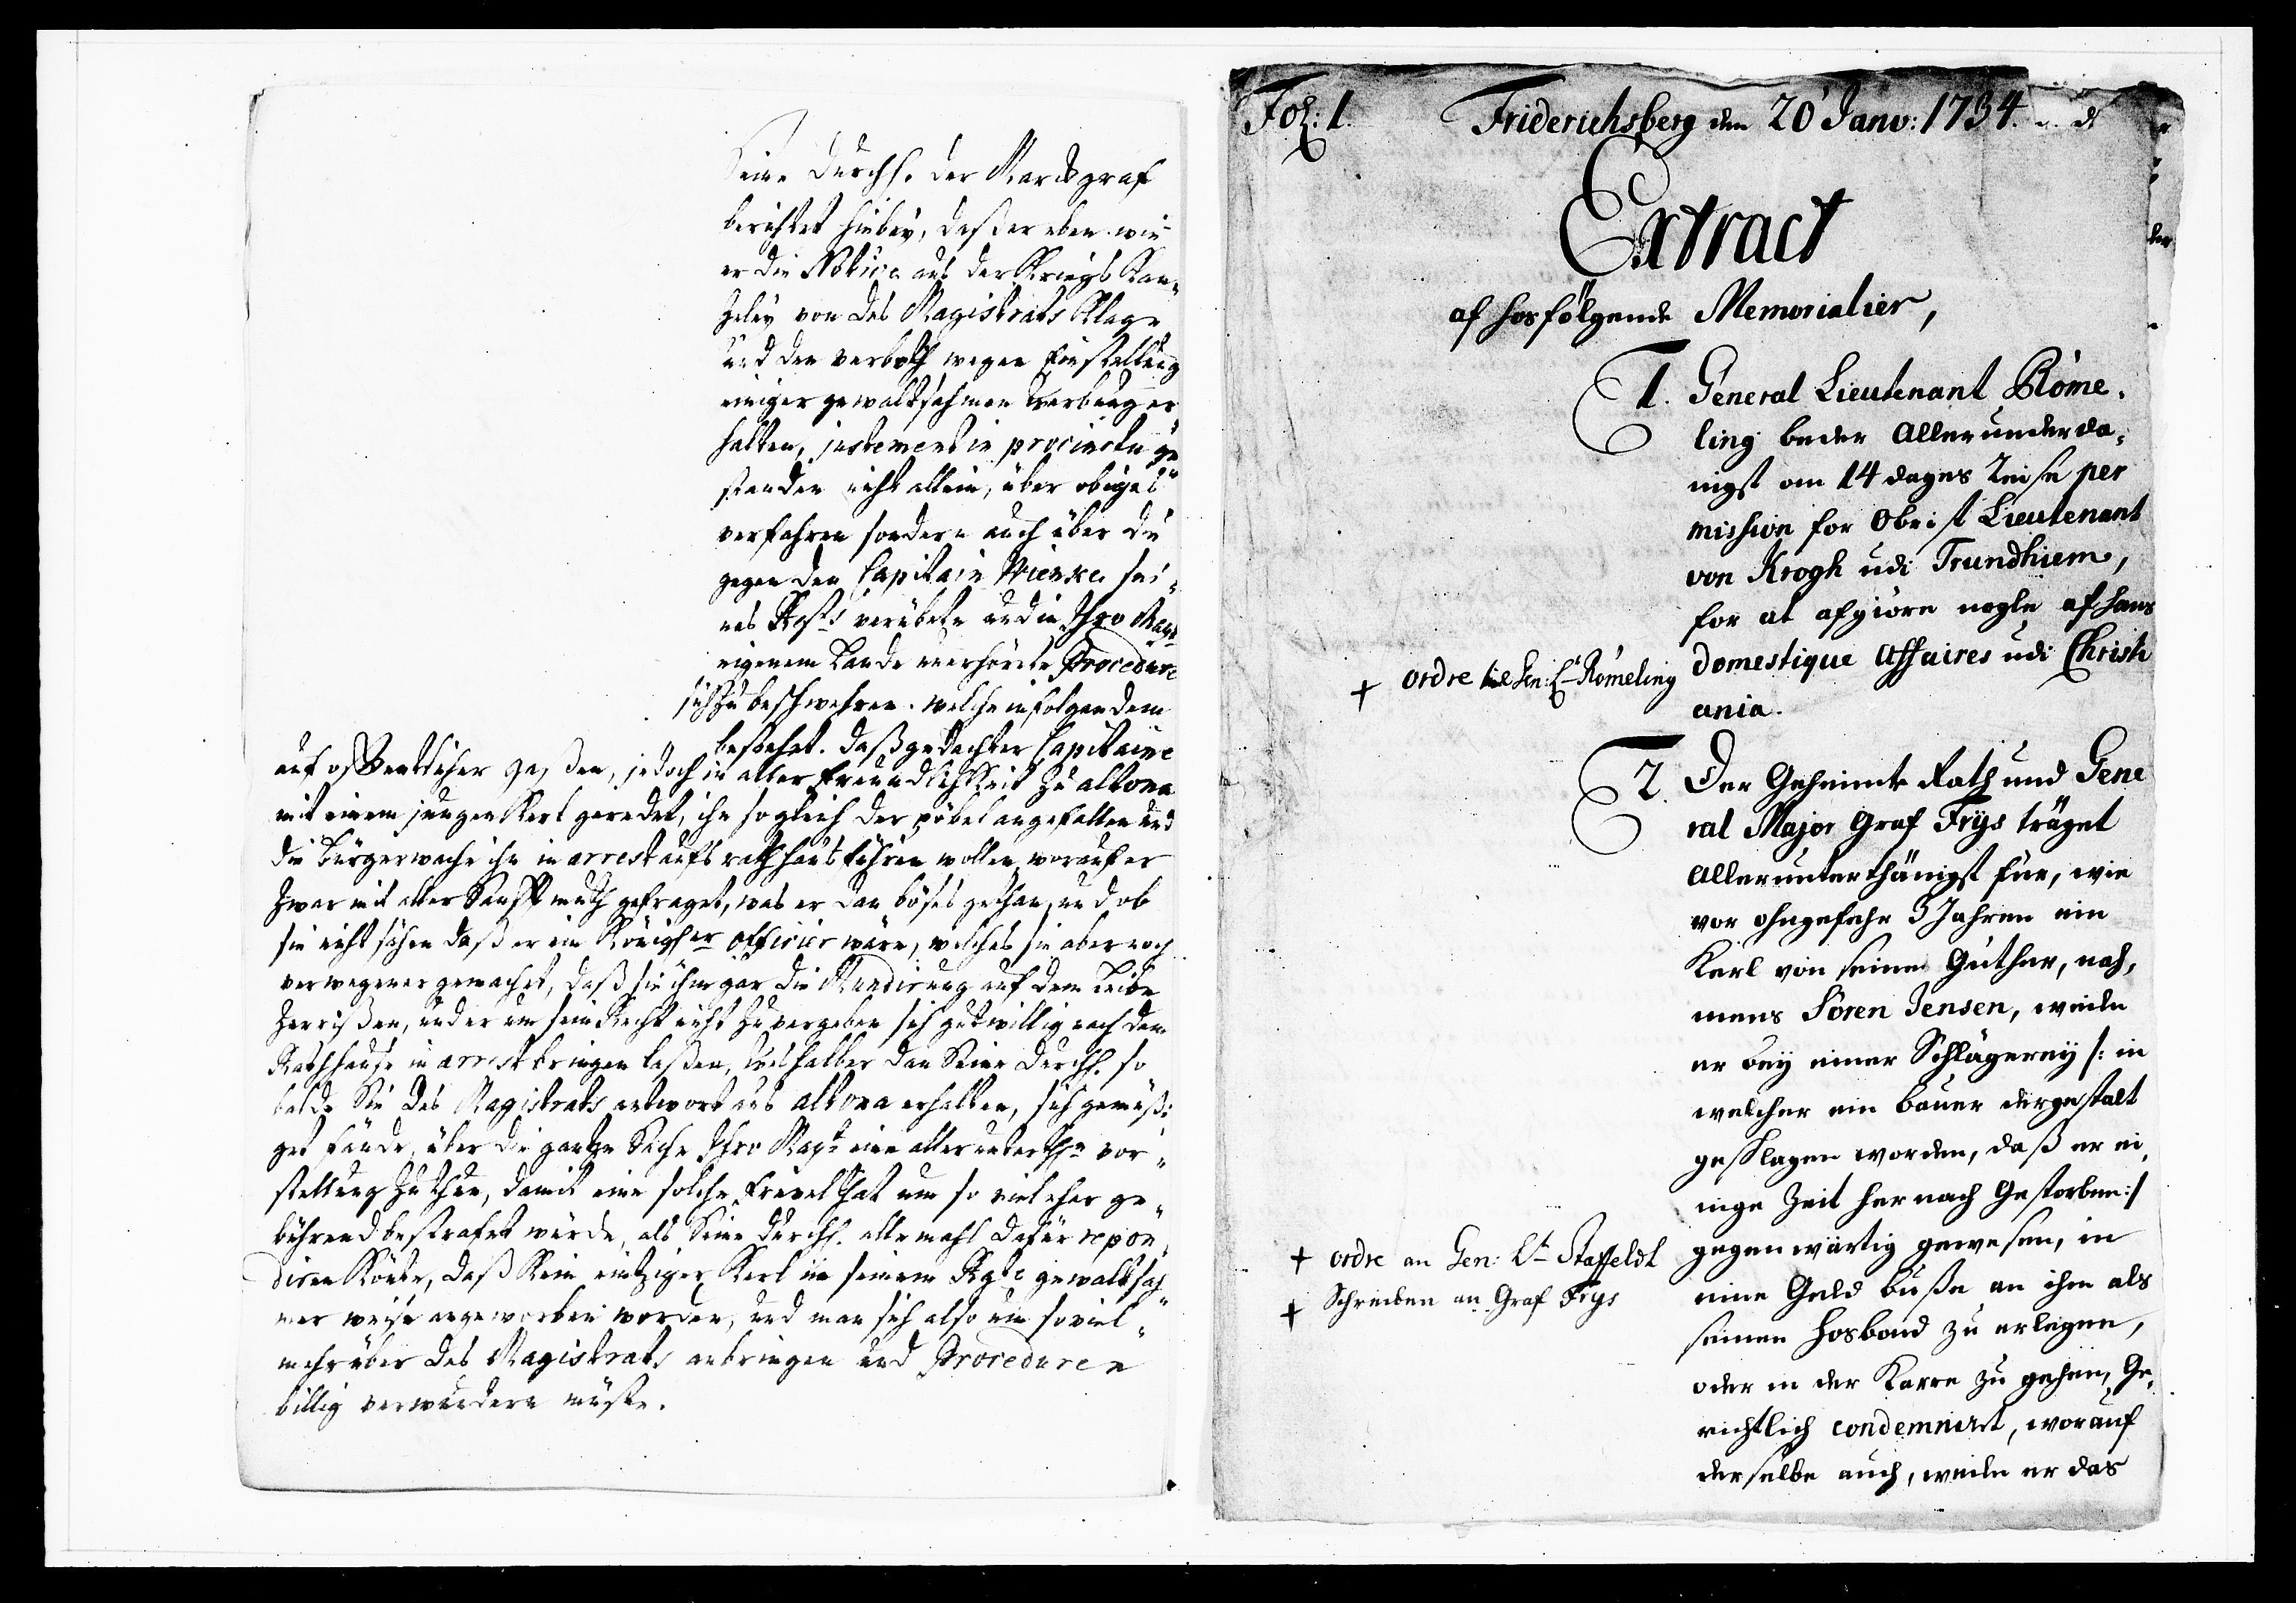 Seine Durchl. der Marckgraf
berichtet hiebey, daß er eben wie
er die Notice aus der Kriegs Kan„
zeley von des Magistrats Klage
und den verboth wegen Einstellung
einiger gewaltsahmen werbung er
halten, justement in procinctu ge„
standen nicht allein, über obiges
verfahren sondern auch über die
gegen den Capitain Wienke sei„
nes Regts verübete und in Ihro Mayt
eigenem Lande unerhörte Procedure
sich zu beschwehren. welche in folgendem
bestehet. daß gedachter Capitaine
auf öffentlicher gaßen, jedoch in aller Freundlichkeit zu altona
mit einem jungen Kerl geredet, ihn sogleich der pöbel angefallen und
die bürgerwache ihn in arrest aufs rathhaus führen wollen, worauf er
zwar mit aller Sanfftmuth gefraget, was er dan böses gethan, und ob
sie nicht sähen daß er ein Königl.er Officier wäre, welches sie aber noch
verwegener gemachet, daß sie ihm gar die Mundirung auf dem Leibe
zerrißen, und er um sein Recht nicht zu vergeben sich gutwillig nach dem
Rathhause in arrest bringen laßen, weshalber dan Seine Durchl. so
balde Sie des Magistrats antwort aus altona erhalten, sich gemüßi
get fände, über die gantze Sache Ihro Mayt eine allerunterthn vor„
stellung zu thun, damit eine solche Frevelthat um so viel eher ge„
bührend bestrafet würde, als Seine Durchl. allemahl dafür repon„
diren könte, daß kein eintziger Kerl in seinem Regte gewaltsah„
mer weise angeworben worden, und man sich also um so viel„
mehr über des Magistrats anbringen und Proceduren
billig verwundern müste.
Fol: 1.
Friderichsberg den 20' Janv: 1734.
Extract
af hosfölgende Memorialier,
1. General Lieutenant Röme„
ling beder Allerunderda„
nigst om 14 dages Reise per
mission for Obrist Lieutenant
von Krogh udi Trundhiem,
for at afgiöre nogle af hans
domestique Affaires udi Christi
ania.
+ ordre til Gen: Lt Römeling
2. Der Geheimte Rath und Gene
ral Major Graf Frÿs träget
Allerunterthänigst für, wie
vor ohngefehr 3 Jahren ein
Kerl von seinen Güthern, nah„
mens Sören Jensen, weilen
er beÿ einer Schlägereÿ /: in
welcher ein bauer dergestalt
geschlagen worden, daß er ei„
nige Zeit hernach Gestorben :/
gegenwärtig gewesen, in
eine Geld buße an ihm als
seinen Hosbond zu erlegen,
oder in der Karre zu gehen, Ge„
richtlich condemniret, worauf
derselbe auch, weilen er das
+ ordre an Gen: Lt Staffeldt
+ Schreiben an Graf Frys